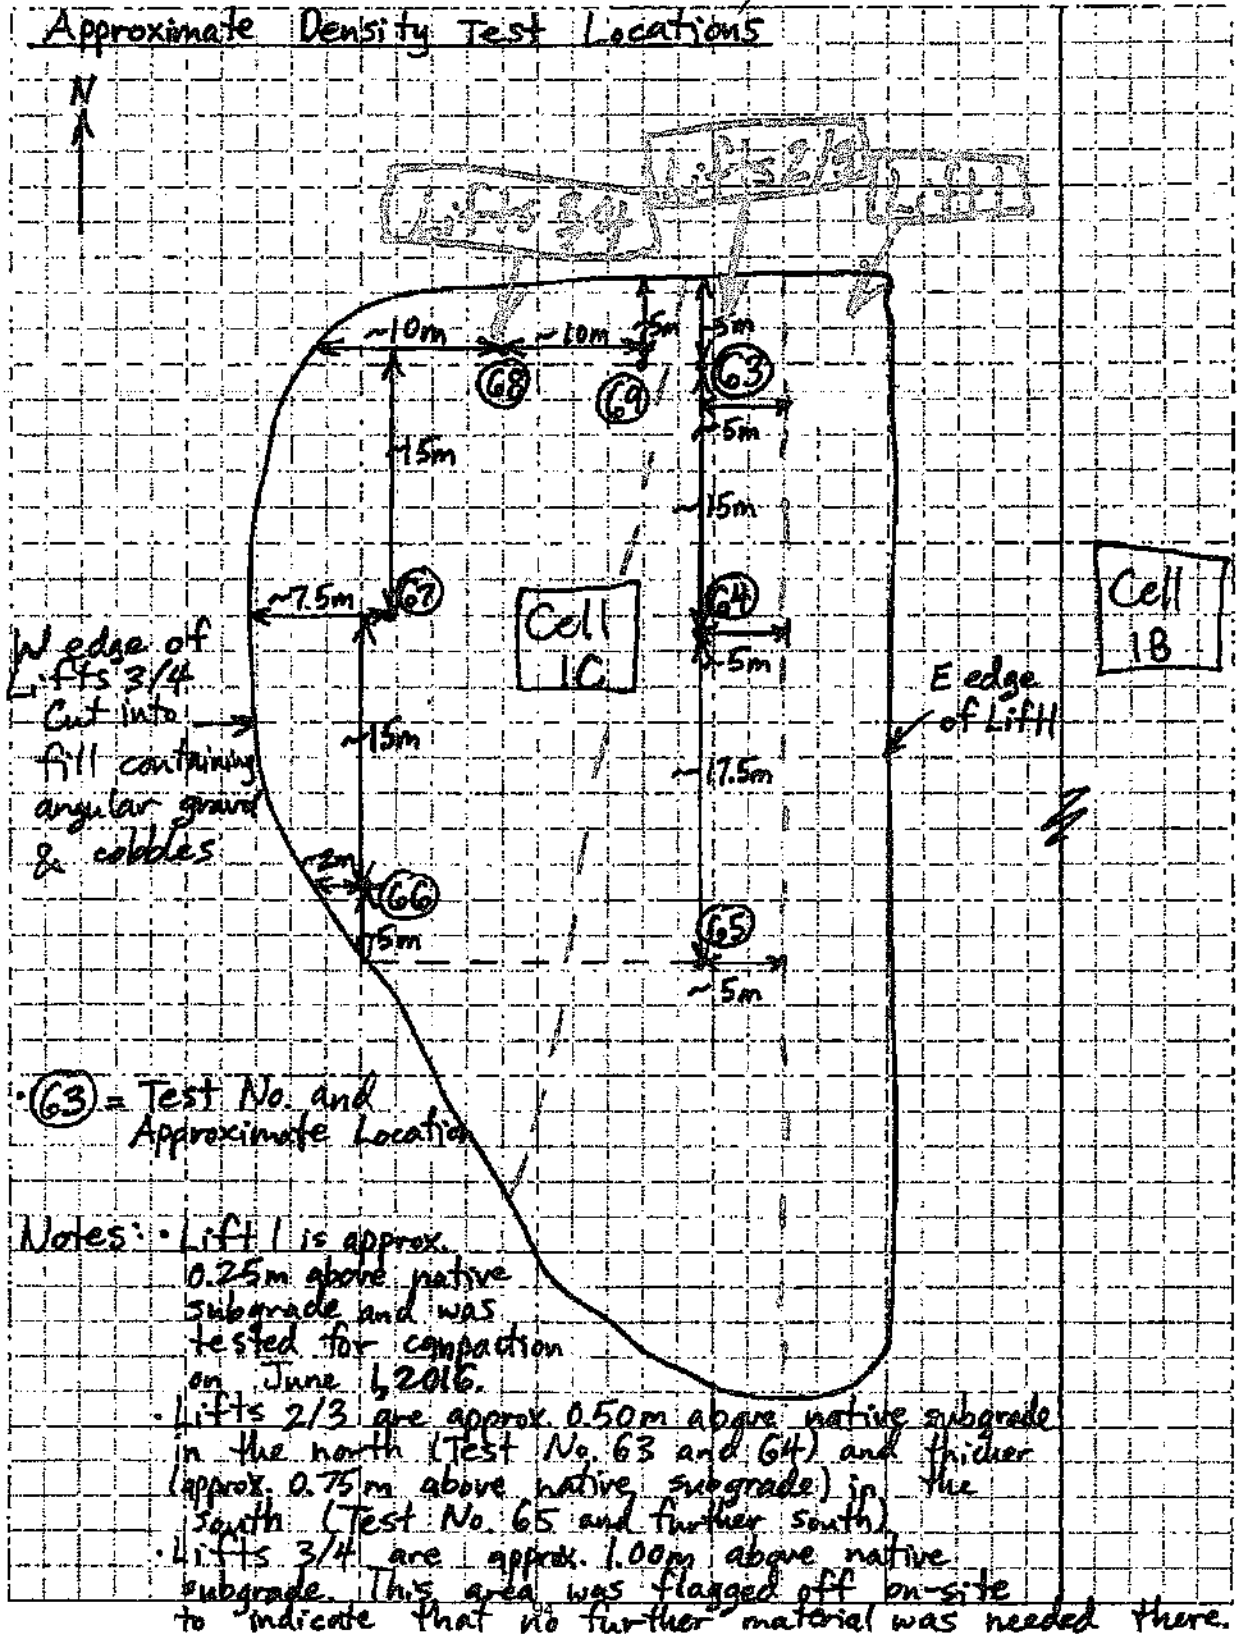 Approximate Density Test Locations
N
Lifts 3/4
Lifts 2/3
Lift 1
~10m
~10m
~5m
~5m
68
69
63
~5m
~15m
~15m
~7.5m
67
64
~5m
Cell
1C
Cell
1B
W edge of
Lifts 3/4
Cut into
fill containing
angular gravel
& cobbles
E edge
of Lift 1
~15m
~17.5m
~2m
66
~5m
65
~5m
·63 = Test No. and
Approximate Location
Notes: · Lift 1 is approx.
0.25m above native
subgrade and was
tested for compaction
on June 1, 2016.
· Lifts 2/3 are approx. 0.50m above native subgrade
in the north (Test No. 63 and 64) and thicker
(approx. 0.75m above native subgrade) in the
south (Test No. 65 and further south).
· Lifts 3/4 are approx. 1.00m above native
subgrade. This area was flagged off on-site
to indicate that no further material was needed there.